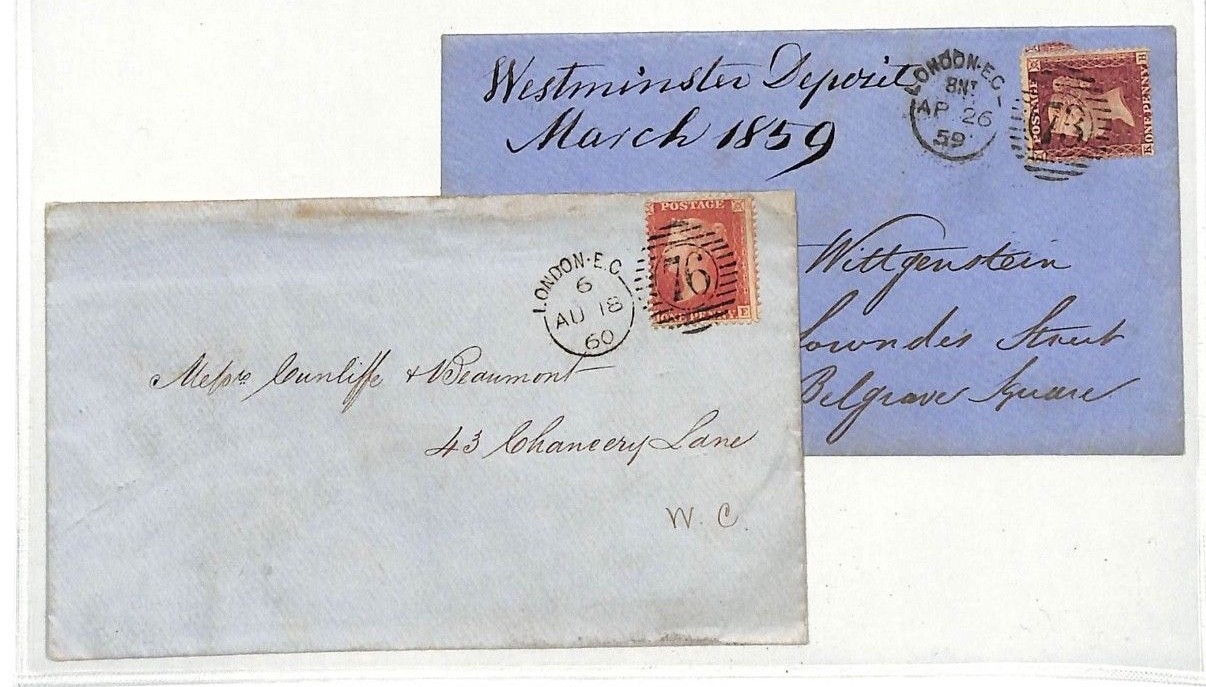 Westminster Deposit
March 1859
LONDON·E.C
8NT
AP 26
59
POSTAGE
ONE PENNY
73
Wittgenstein
Lowndes Street
Belgrave Square
POSTAGE
ONE PENNY
E
76
LONDON·E.C.
6
AU 18
60
Messrs Cunliffe & Beaumont
43 Chancery Lane
W. C.